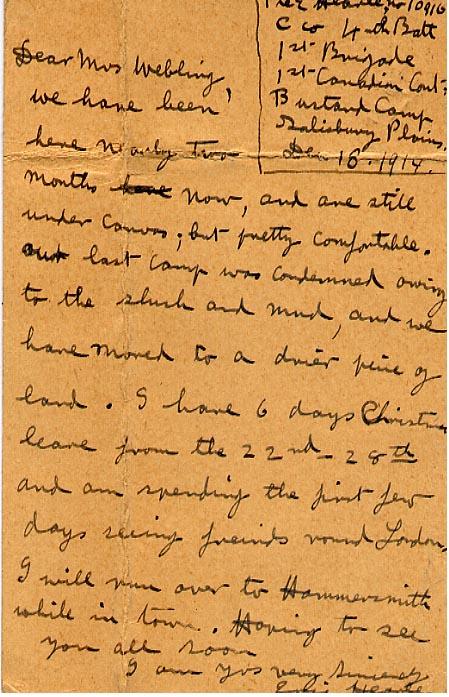 Pte E Hearle, no 10916
C co 4th Batt
1st Brigade
1st Canadian Cont.
Bustard Camp
Salisbury Plains.
Dec 16. 1914.
Dear Mrs Webbling,
we have been
here nearly two
months have now, and are still
under canvas; but pretty comfortable.
our last camp was condemned owing
to the slush and mud, and we
have moved to a drier peice of
land. I have 6 days Christmas
leave from the 22nd - 28th
and am spending the first few
days seeing freinds round London.
I will run over to Hammersmith
while in town. Hoping to see
you all soon
I am yrs very sincerely